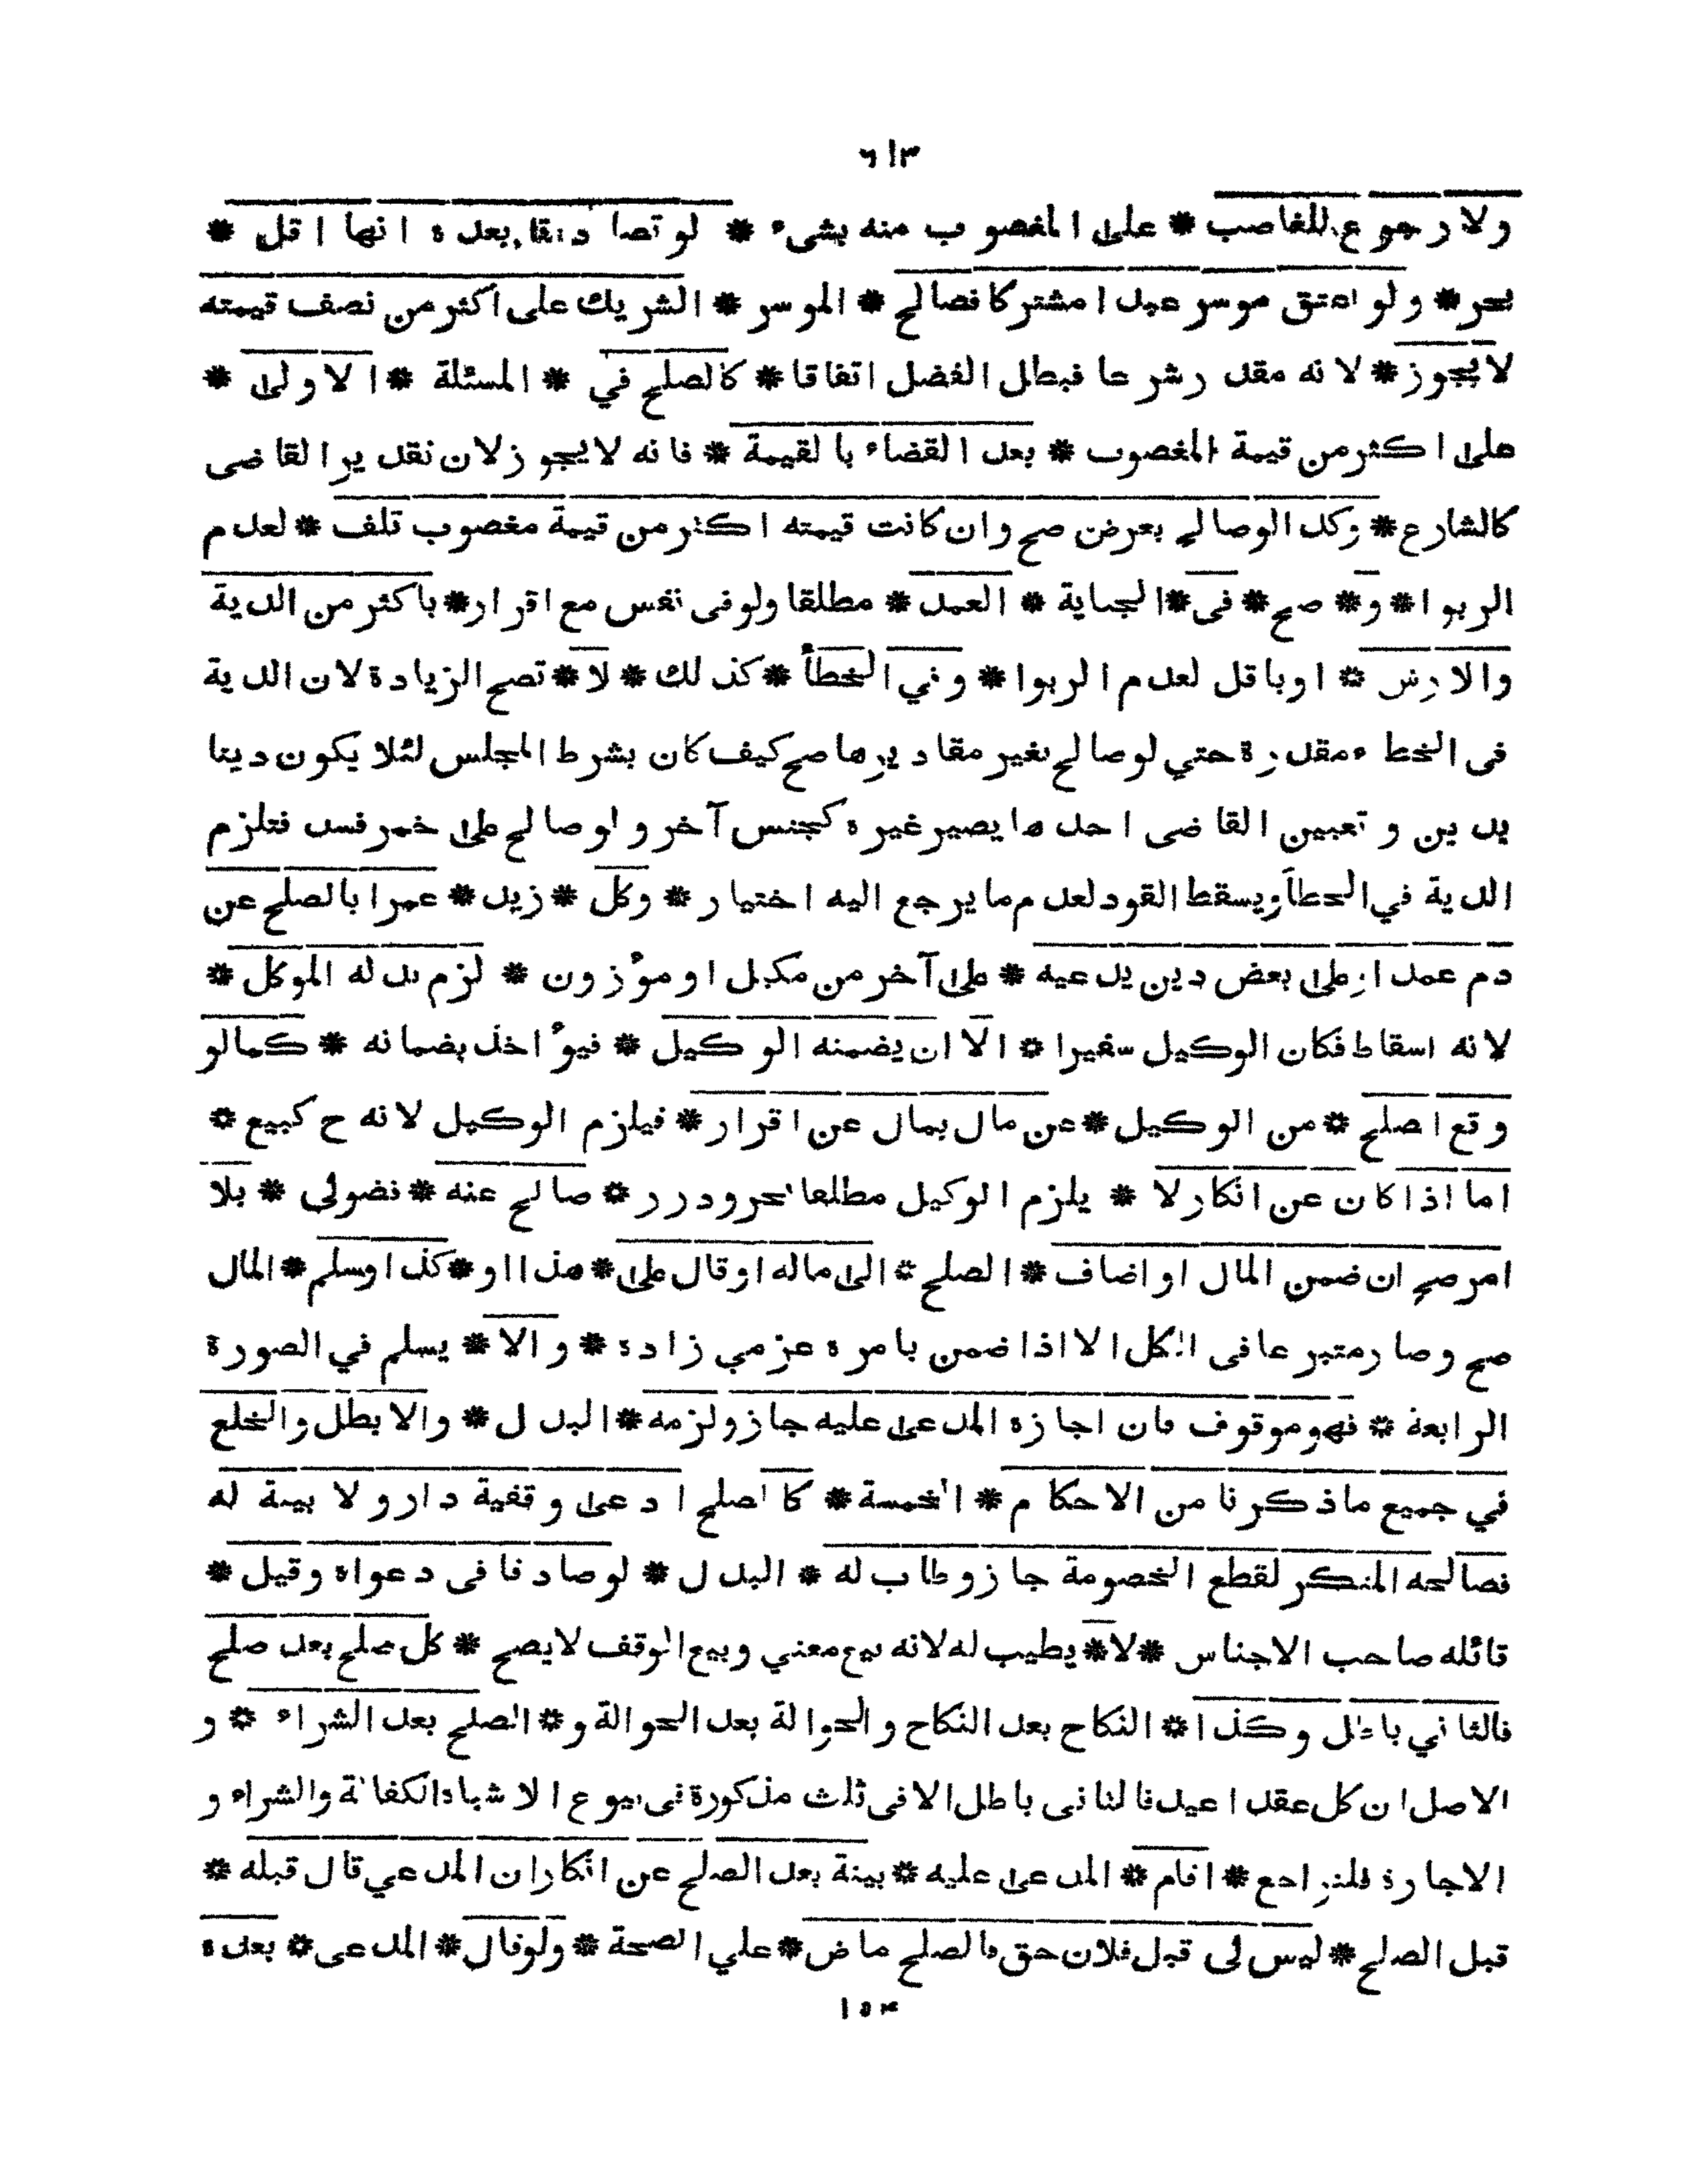 ٦١٣
ولا رجوع للغاصب * على المغصوب منه بشىء * لو تصادقا بعده انها اقل *
بحر * ولو اعتق موسر عبدا مشتركا فصالح * الموسر * الشريك على اكثر من نصف قيمته
لا يجوز * لانه مقدر شرعا فبطل الفضل اتفاقا * كالصلح في * المسئلة * الاولى *
على اكثر من قيمة المغصوب * بعد القضاء بالقيمة * فانه لا يجوز لان تقدير القاضى
كالشارع * وكذا لو صالح بعرض صح وان كانت قيمته اكثر من قيمة مغصوب تلف * لعدم
الربوا * و * صح * فى * الجناية * العمد * مطلقا ولو فى نفس مع اقرار * باكثر من الدية
والارش * او باقل لعدم الربوا * وفي الخطأ * كذلك * لا * تصح الزيادة لان الدية
فى الخطء مقدرة حتي لو صالح بغير مقاديرها صح كيف كان بشرط المجلس لئلا يكون دينا
بدين وتعيين القاضى احدها يصير غيره كجنس آخر ولو صالح على خمر فسد فتلزم
الدية في الخطأ ويسقط القود لعدم ما يرجع اليه اختيار * وكل * زيد * عمرا بالصلح عن
دم عمد او على بعض دين يدعيه * على آخر من مكيل او موزون * لزم بدله الموكل *
لانه اسقاط فكان الوكيل سفيرا * الا ان يضمنه الوكيل * فيؤاخذ بضمانه * كما لو
وقع اصلح * من الوكيل * عن مال بمال عن اقرار * فيلزم الوكيل لانه ح كبيع *
اما اذا كان عن انكار لا * يلزم الوكيل مطلقا بحر ودرر * صالح عنه * فضولى * بلا
امر صح ان ضمن المال او اضاف * الصلح * الى ماله او قال على * هذا او * كذا وسلم * المال
صح وصار متبرعا فى الكل الا اذا ضمن بامره عزمي زاده * والا * يسلم في الصورة
الرابعة * فهو موقوف فان اجازه المدعى عليه جاز ولزمه * البدل * والا بطل والخلع
في جميع ما ذكرنا من الاحكام * الخمسة * كالصلح ادعى وقفية دار ولا بينة له
فصالحه المنكر لقطع الخصومة جاز وطاب له * البدل * لو صادقا فى دعواه وقيل *
قائله صاحب الاجناس * لا * يطيب له لانه بيع معني وبيع الوقف لا يصح * كل صلح بعد صلح
فالثاني باطل وكذا * النكاح بعد النكاح والحوالة بعد الحوالة و * الصلح بعد الشراء * و
الاصل ان كل عقد اعيد فالثانى باطل الا فى ثلث مذكورة فى بيوع الاشباه الكفالة والشراء و
الاجارة فلتراجع * اقام * المدعى عليه * بينة بعد الصلح عن انكار ان المدعي قال قبله *
قبل الصلح * ليس لى قبل فلان حق فالصلح ماض * علي الصحة * ولو قال * المدعى * بعده
١٥٤